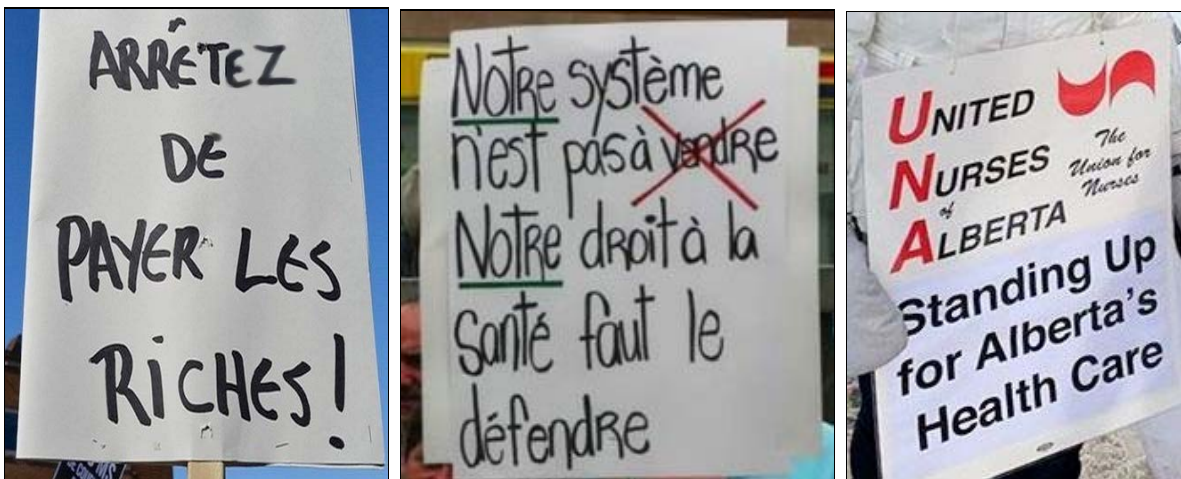 ARRÊTEZ
DE
PAYER LES
RICHES!
Notre système
n'est pas à vendre
Notre droit à la
santé faut le
défendre
UNITED
NURSES
of
ALBERTA
The
Union for
Nurses
Standing Up
for Alberta's
Health Care